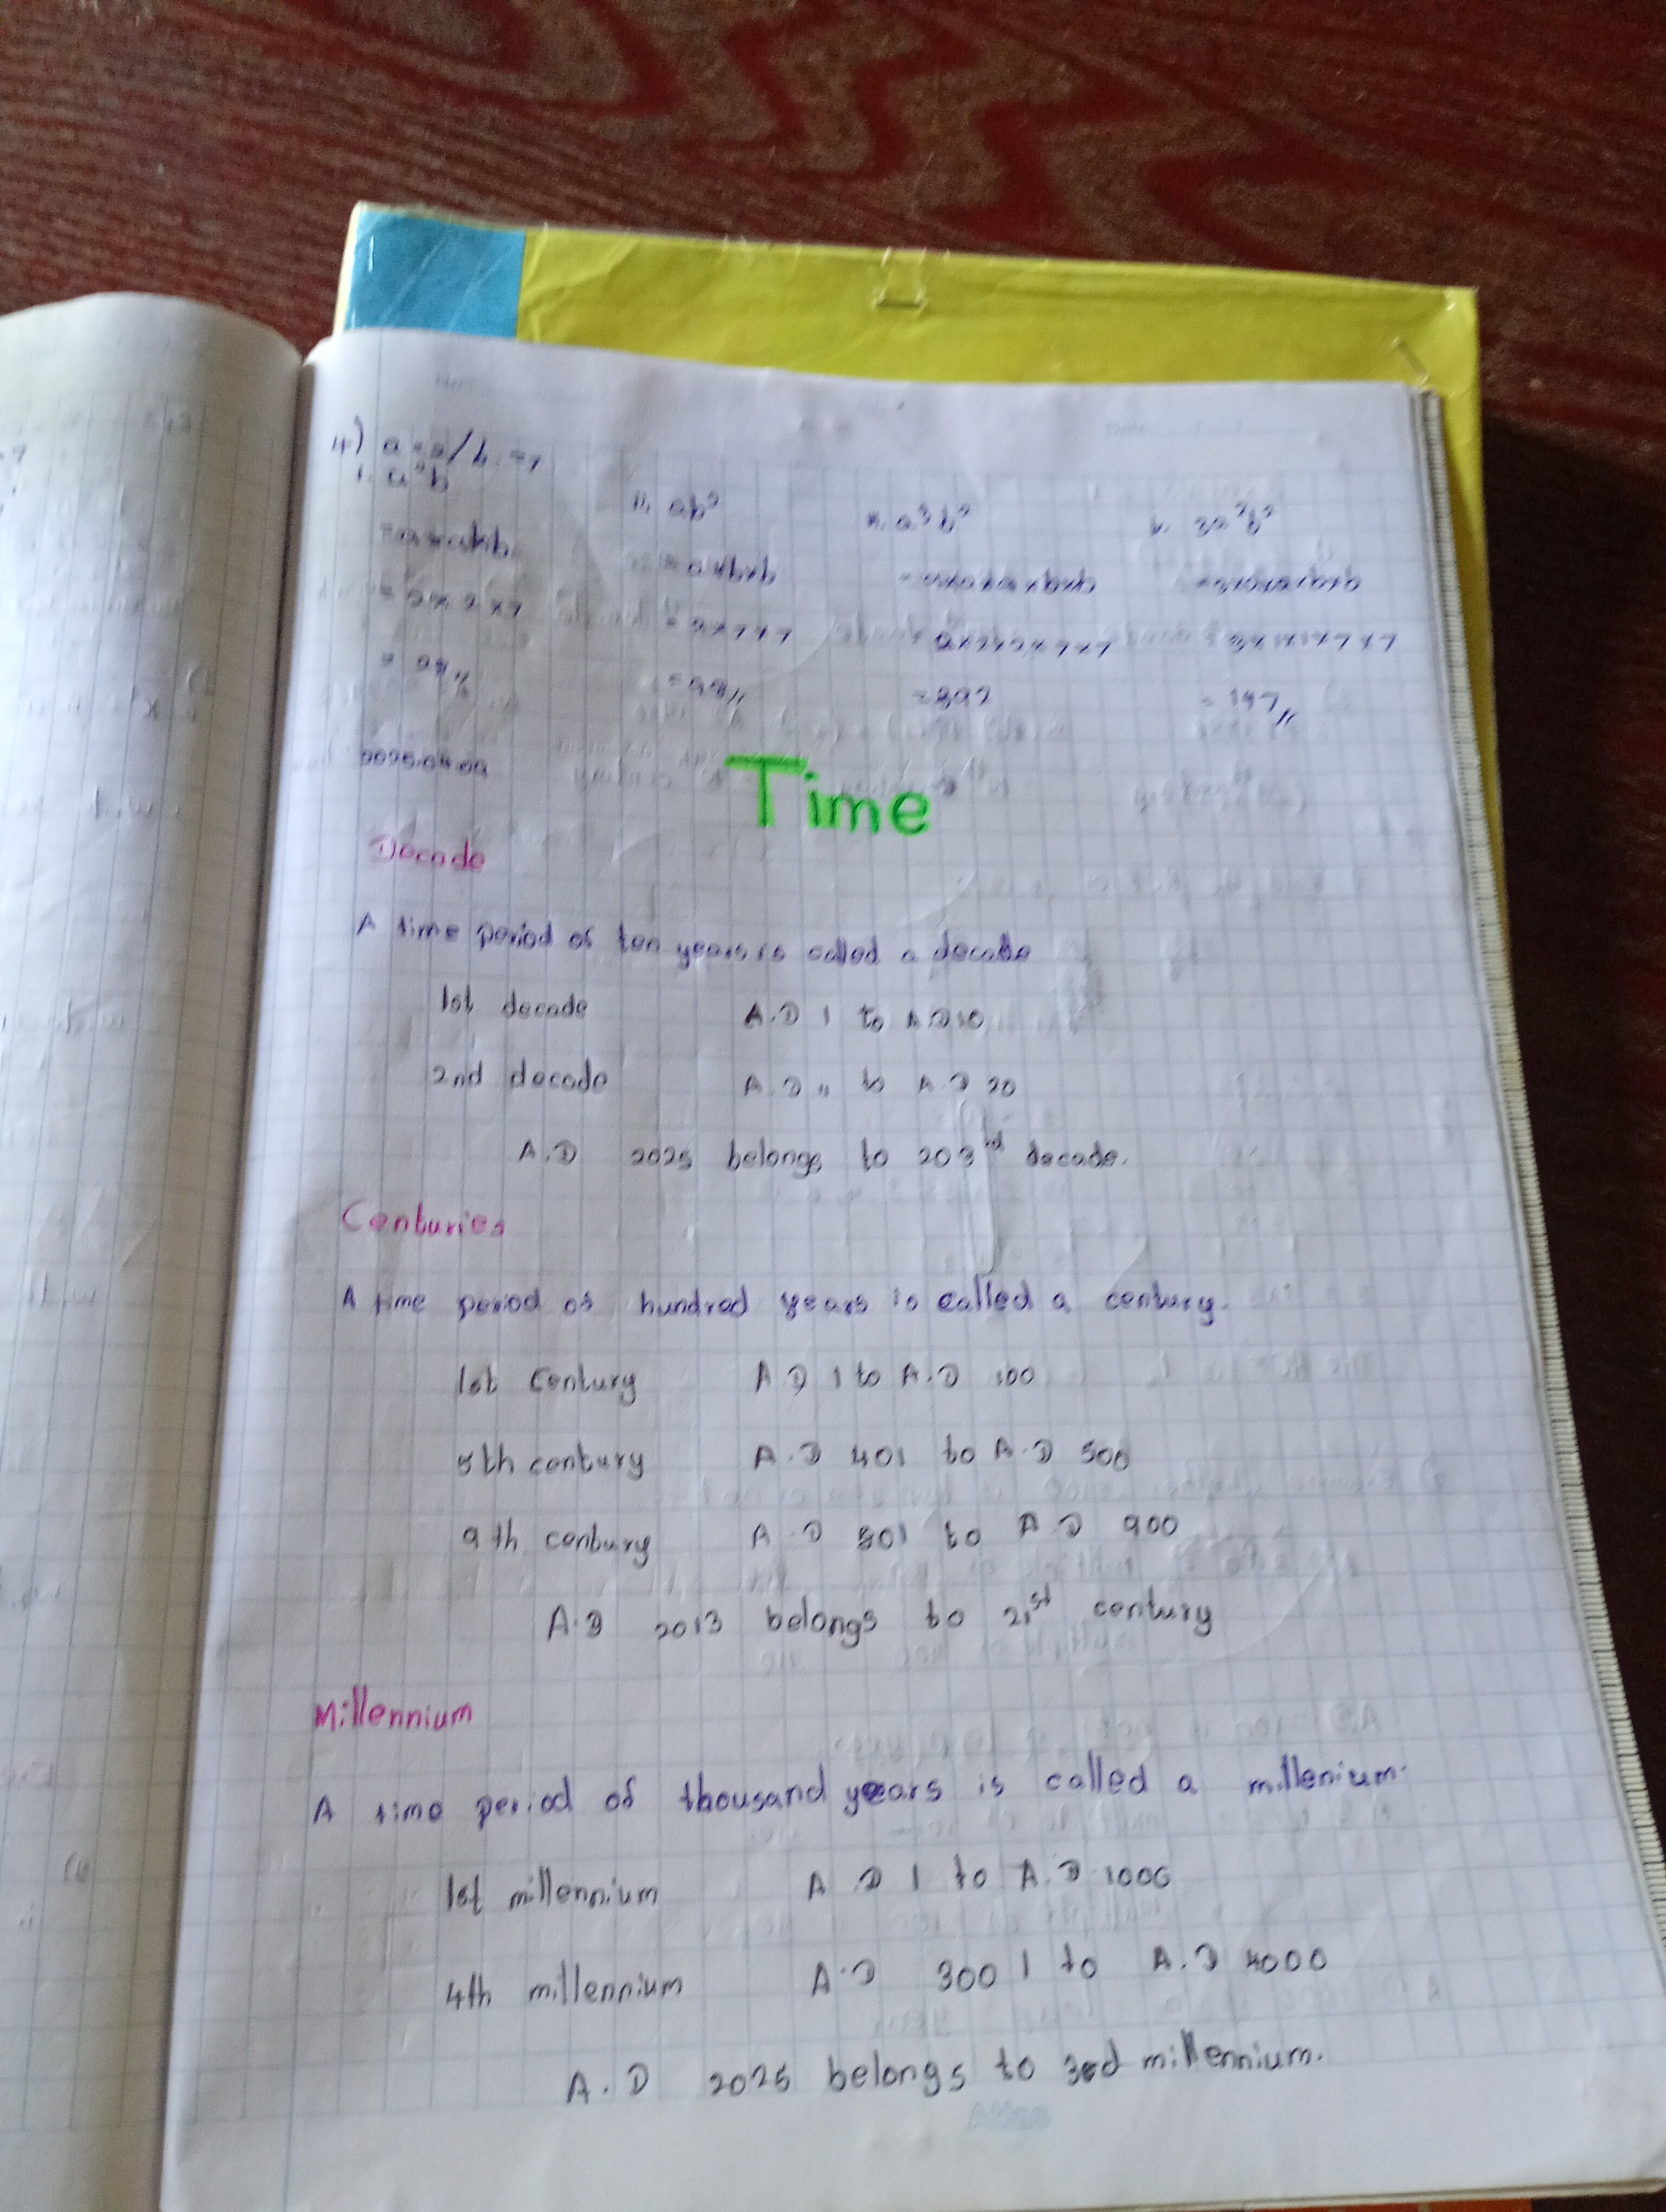 4) a = 2 / b = 7
i. a²b
ii. ab²
iii. a³b²
iv. 3a²b²
= a×a×b
= a×b×b
= a×a×a×b×b
= 3×a×a×b×b
= 2×2×7
= 2×7×7
2×2×2×7×7
= 3×1×1×7×7
= 28 //
= 98 //
= 392
= 147 //
2025.04.09
Time
Decade
A time period of ten years is called a decade
1st decade A.D 1 to A.D 10
2nd decade A.D 11 to A.D 20
A.D 2025 belongs to 203rd decade.
Centuries
A time period of hundred years is called a century.
1st Century A D 1 to A.D 100
5th century A.D 401 to A.D 500
9th century A.D 801 to A D 900
A.D 2013 belongs to 21st century
Millennium
A time period of thousand years is called a millenium.
1st millennium A D 1 to A.D 1000
4th millennium A.D 3001 to A.D 4000
A.D 2025 belongs to 3rd millennium.
Atlas